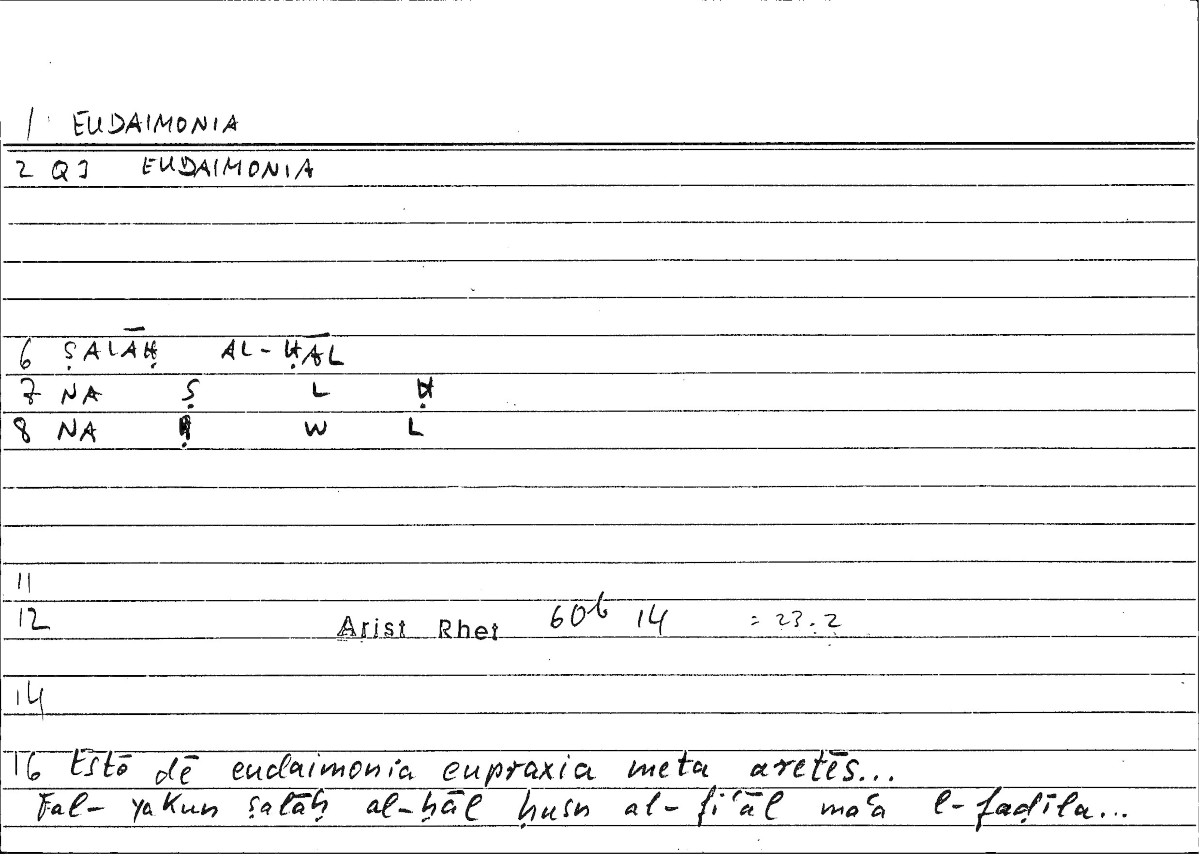 1 EUDAIMONIA
2 QJ EUDAIMONIA
6 ṢALĀḤ AL-ḤĀL
7 NA Ṣ L Ḥ
8 NA Ḥ W L
11
12 Arist Rhet 60b 14 = 23.2
14
16 Estō dē eudaimonia eupraxia meta aretēs...
Fal-yakun ṣalāḥ al-ḥāl ḥusn al-fiʿāl maʿa l-faḍīla...